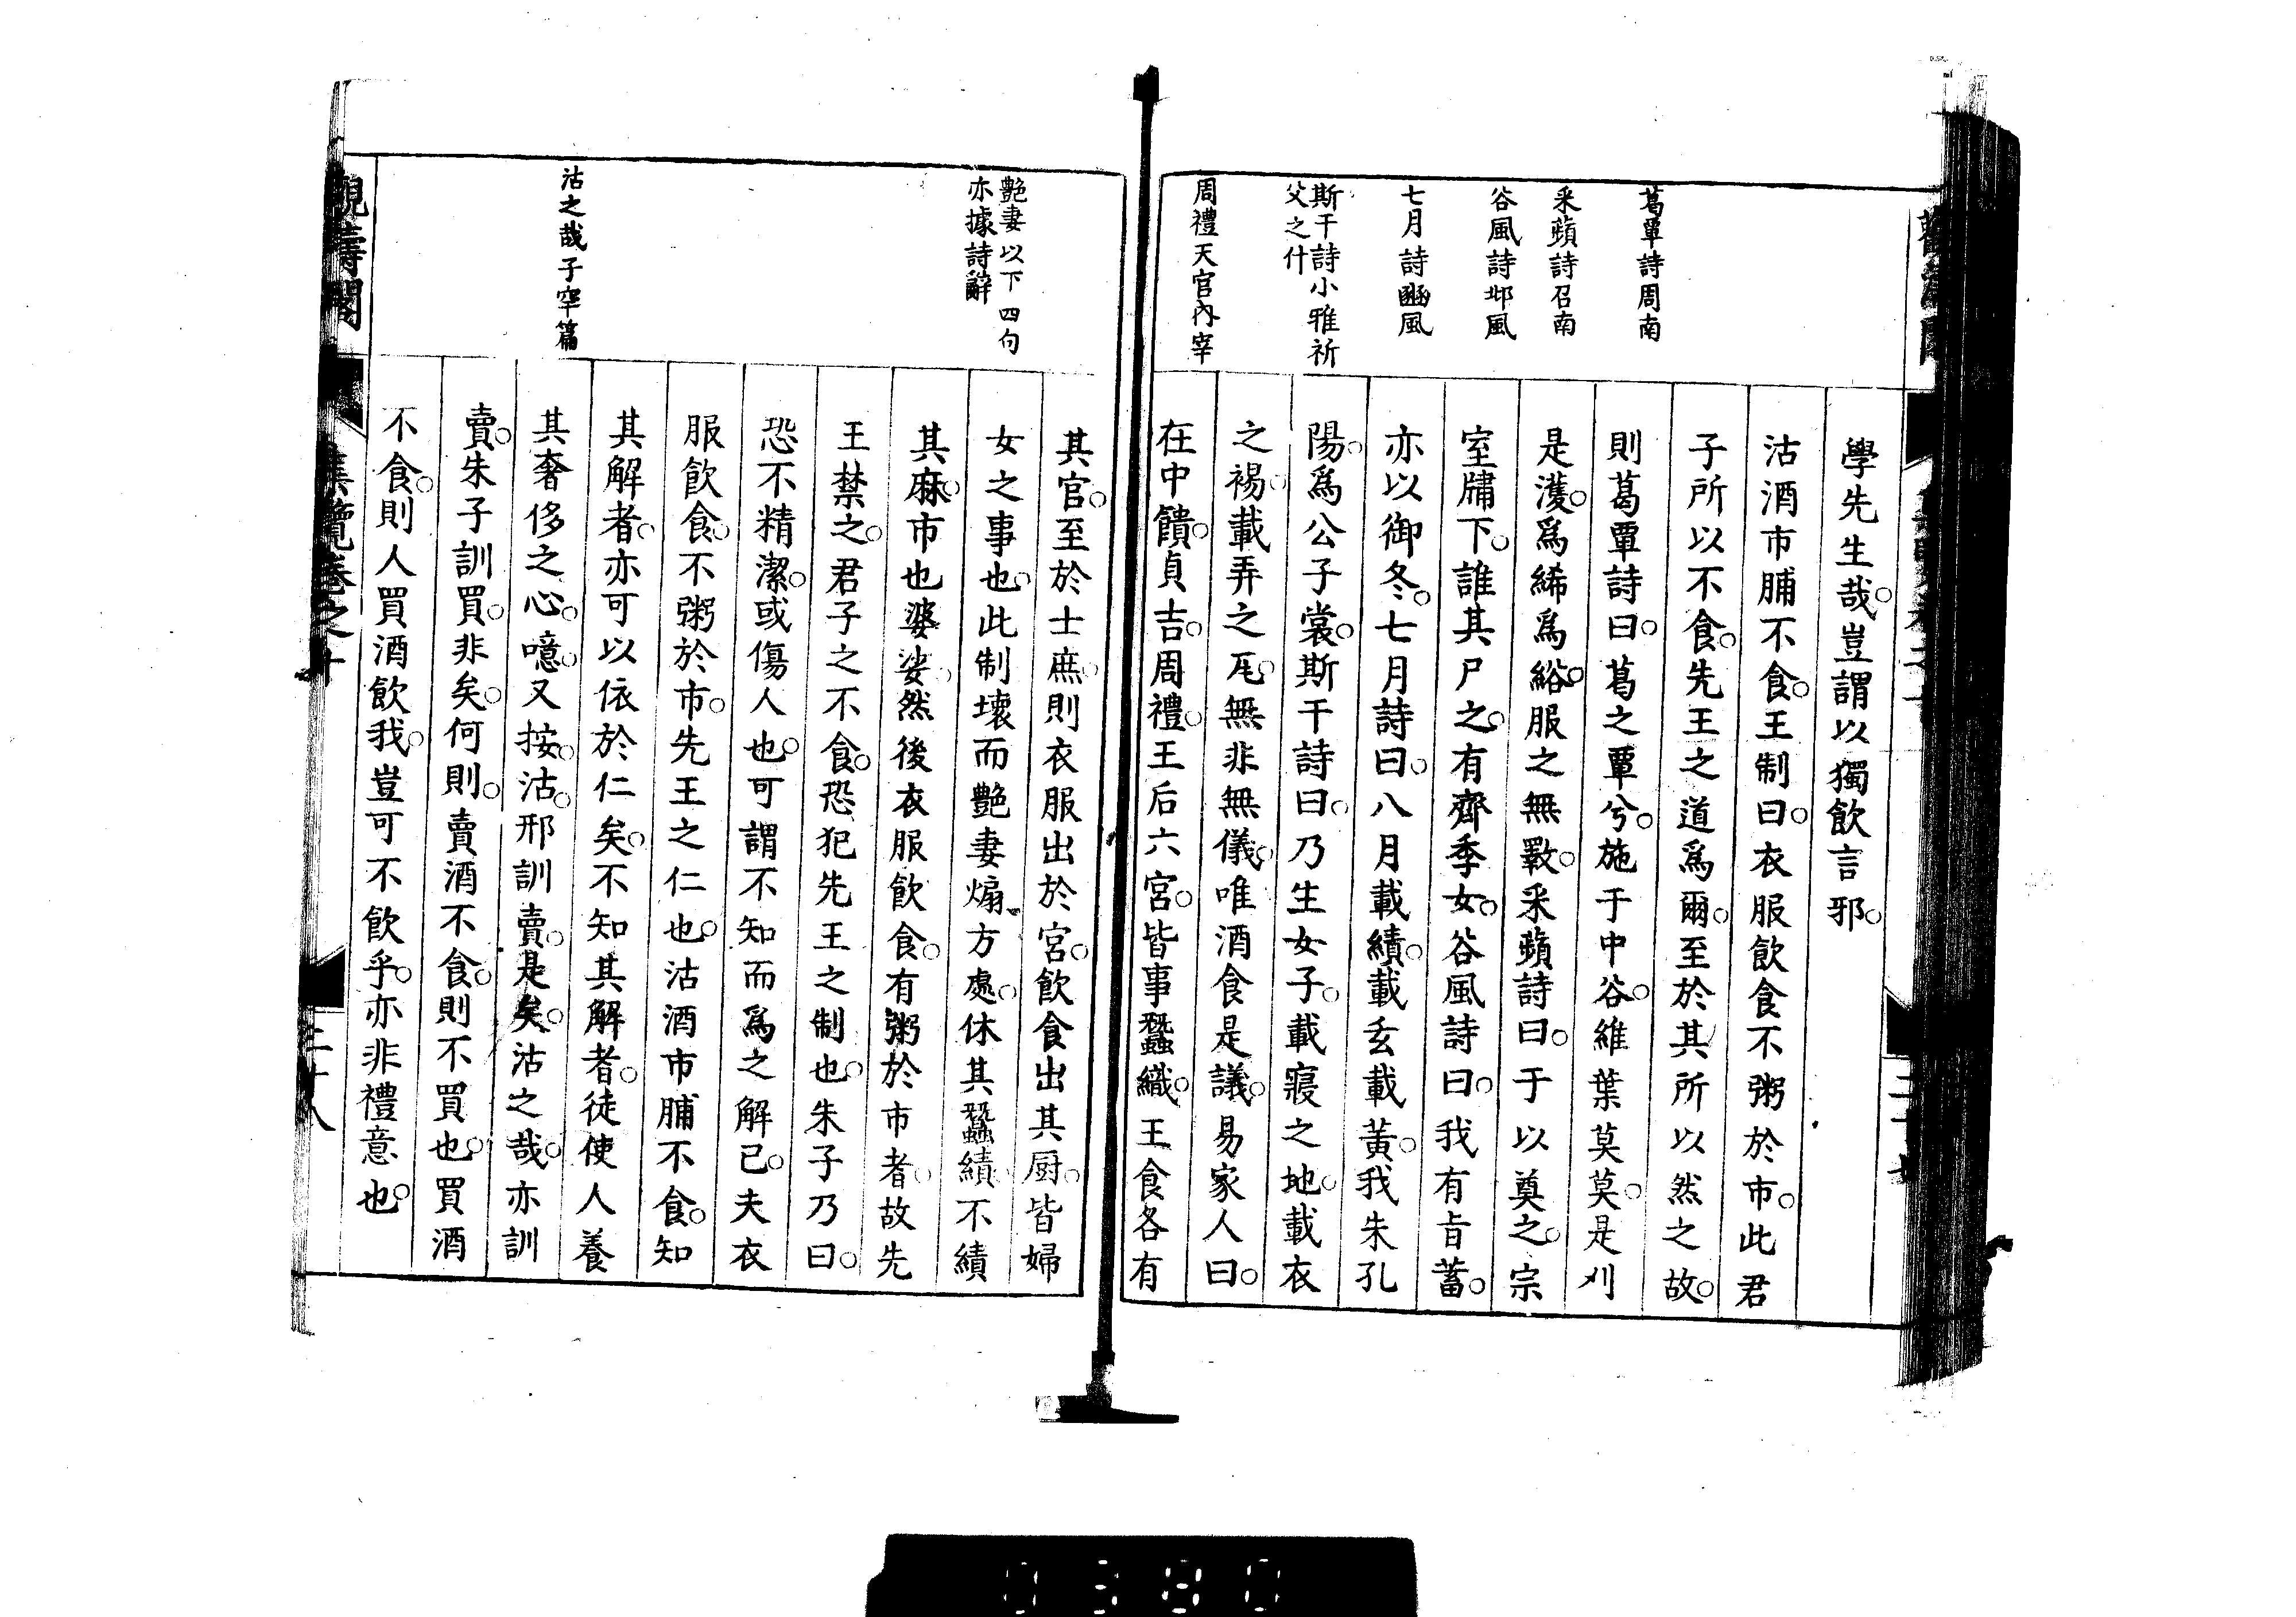 葛覃詩周南
采蘋詩召南
谷風詩邶風
七月詩豳風
斯干詩小雅祈
父之什
周禮天官內宰
學先生哉豈謂以獨飲言邪
沽酒市脯不食王制曰衣服飲食不粥於市此君
子所以不食先王之道爲爾至於其所以然之故
則葛覃詩曰葛之覃兮施于中谷維葉莫莫是刈
是濩爲絺爲綌服之無斁采蘋詩曰于以奠之宗
室牖下誰其尸之有齊季女谷風詩曰我有旨蓄
亦以御冬七月詩曰八月載績載玄載黃我朱孔
陽爲公子裳斯干詩曰乃生女子載寢之地載衣
之裼載弄之瓦無非無儀唯酒食是議易家人曰
在中饋貞吉周禮王后六宮皆事蠶織王食各有
艷妻以下四句
亦據詩辭
沽之哉子罕篇
其官至於士庶則衣服出於宮飲食出其厨皆婦
女之事也此制壞而艷妻煽方處休其蠶績不績
其麻市也婆娑然後衣服飲食有粥於市者故先
王禁之君子之不食恐犯先王之制也朱子乃曰
恐不精潔或傷人也可謂不知而爲之解已夫衣
服飲食不粥於市先王之仁也沽酒市脯不食知
其解者亦可以依於仁矣不知其解者徒使人養
其奢侈之心噫又按沽邢訓賣是矣沽之哉亦訓
賣朱子訓買非矣何則賣酒不食則不買也買酒
不食則人買酒飲我豈可不飲乎亦非禮意也
觀濤閣
集覽卷之十
二十八
0380